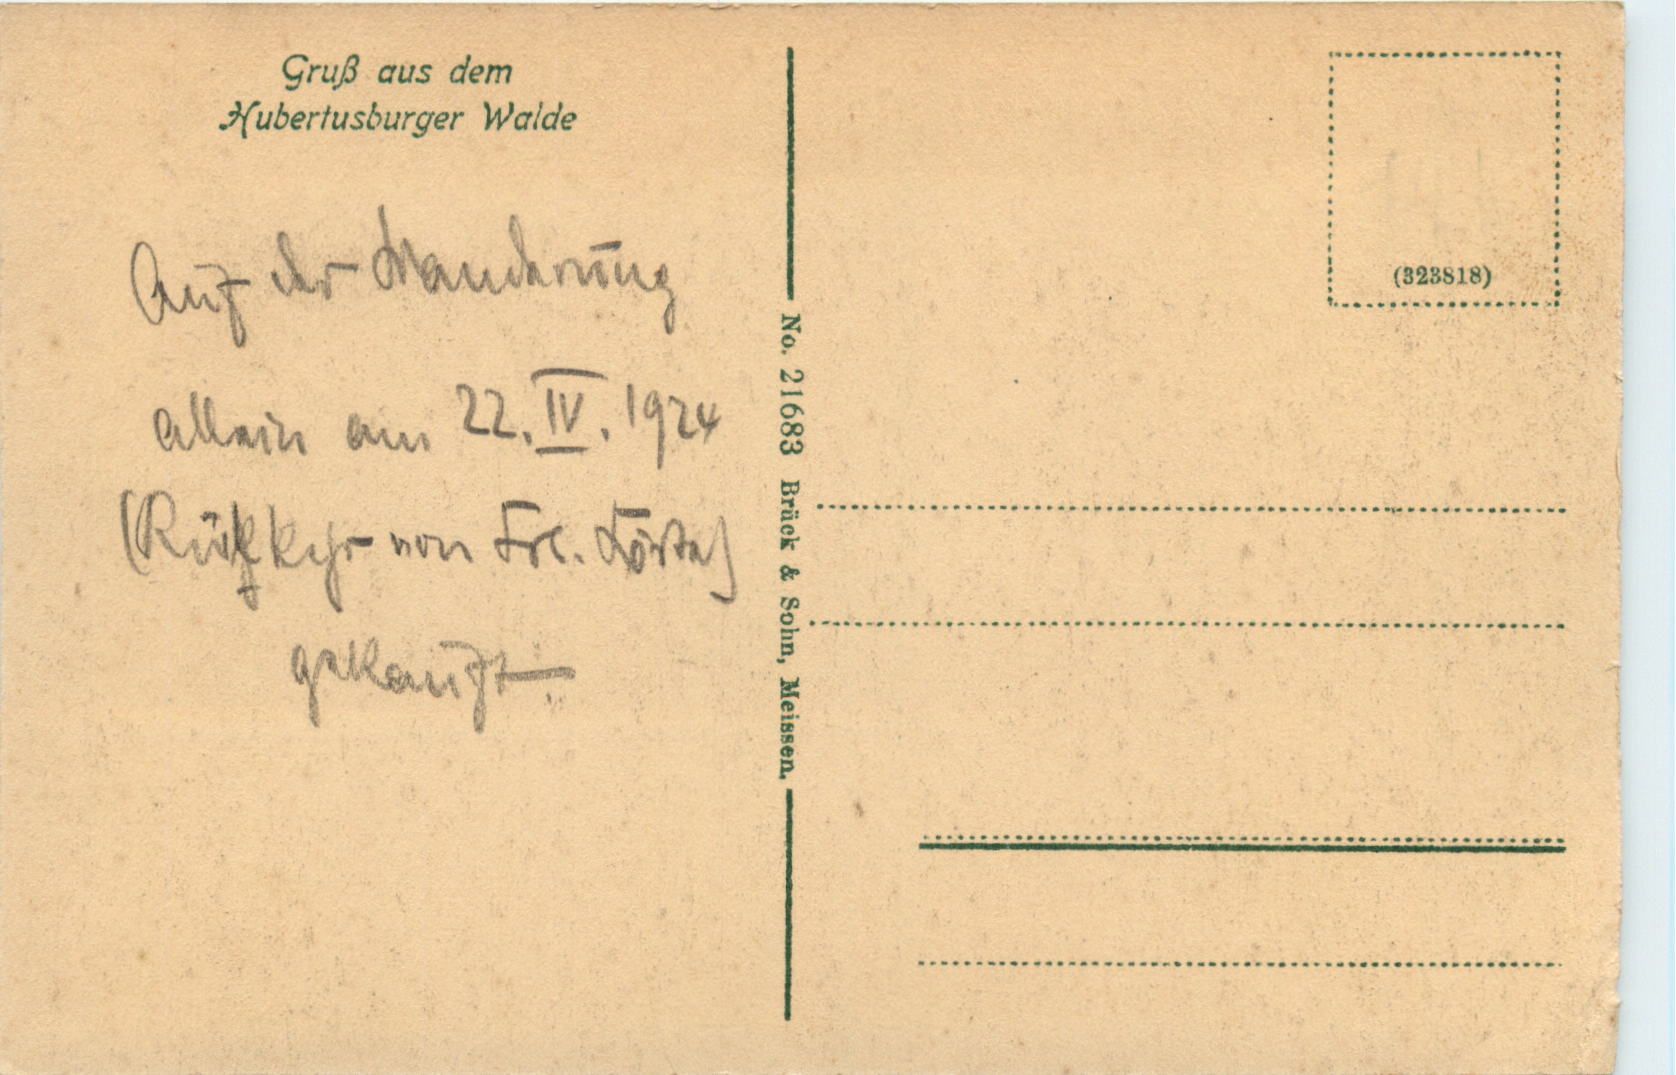 Gruß aus dem
Hubertusburger Walde
Auf der Wanderung
allein am 22. IV. 1924
(Rückkehr von Frl.
gekauft.
No. 21683 Brück & Sohn, Meissen.
(323818)